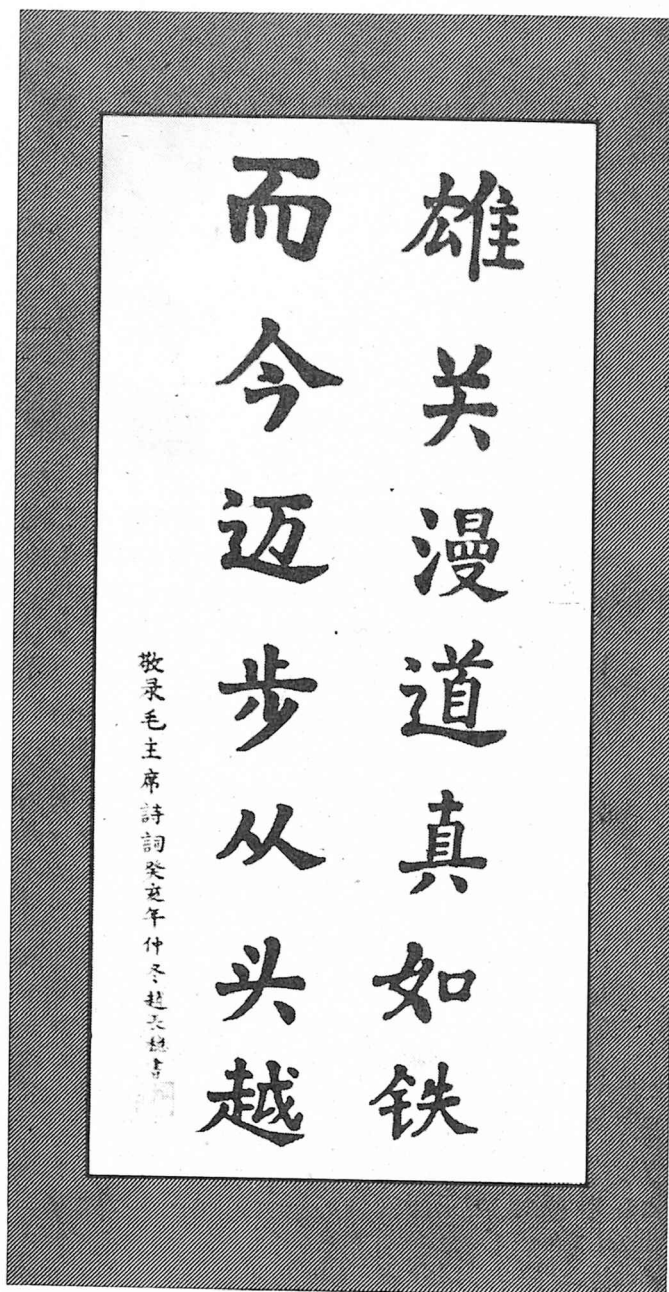 雄关漫道真如铁
而今迈步从头越
敬录毛主席詩詞癸亥年仲冬趙書